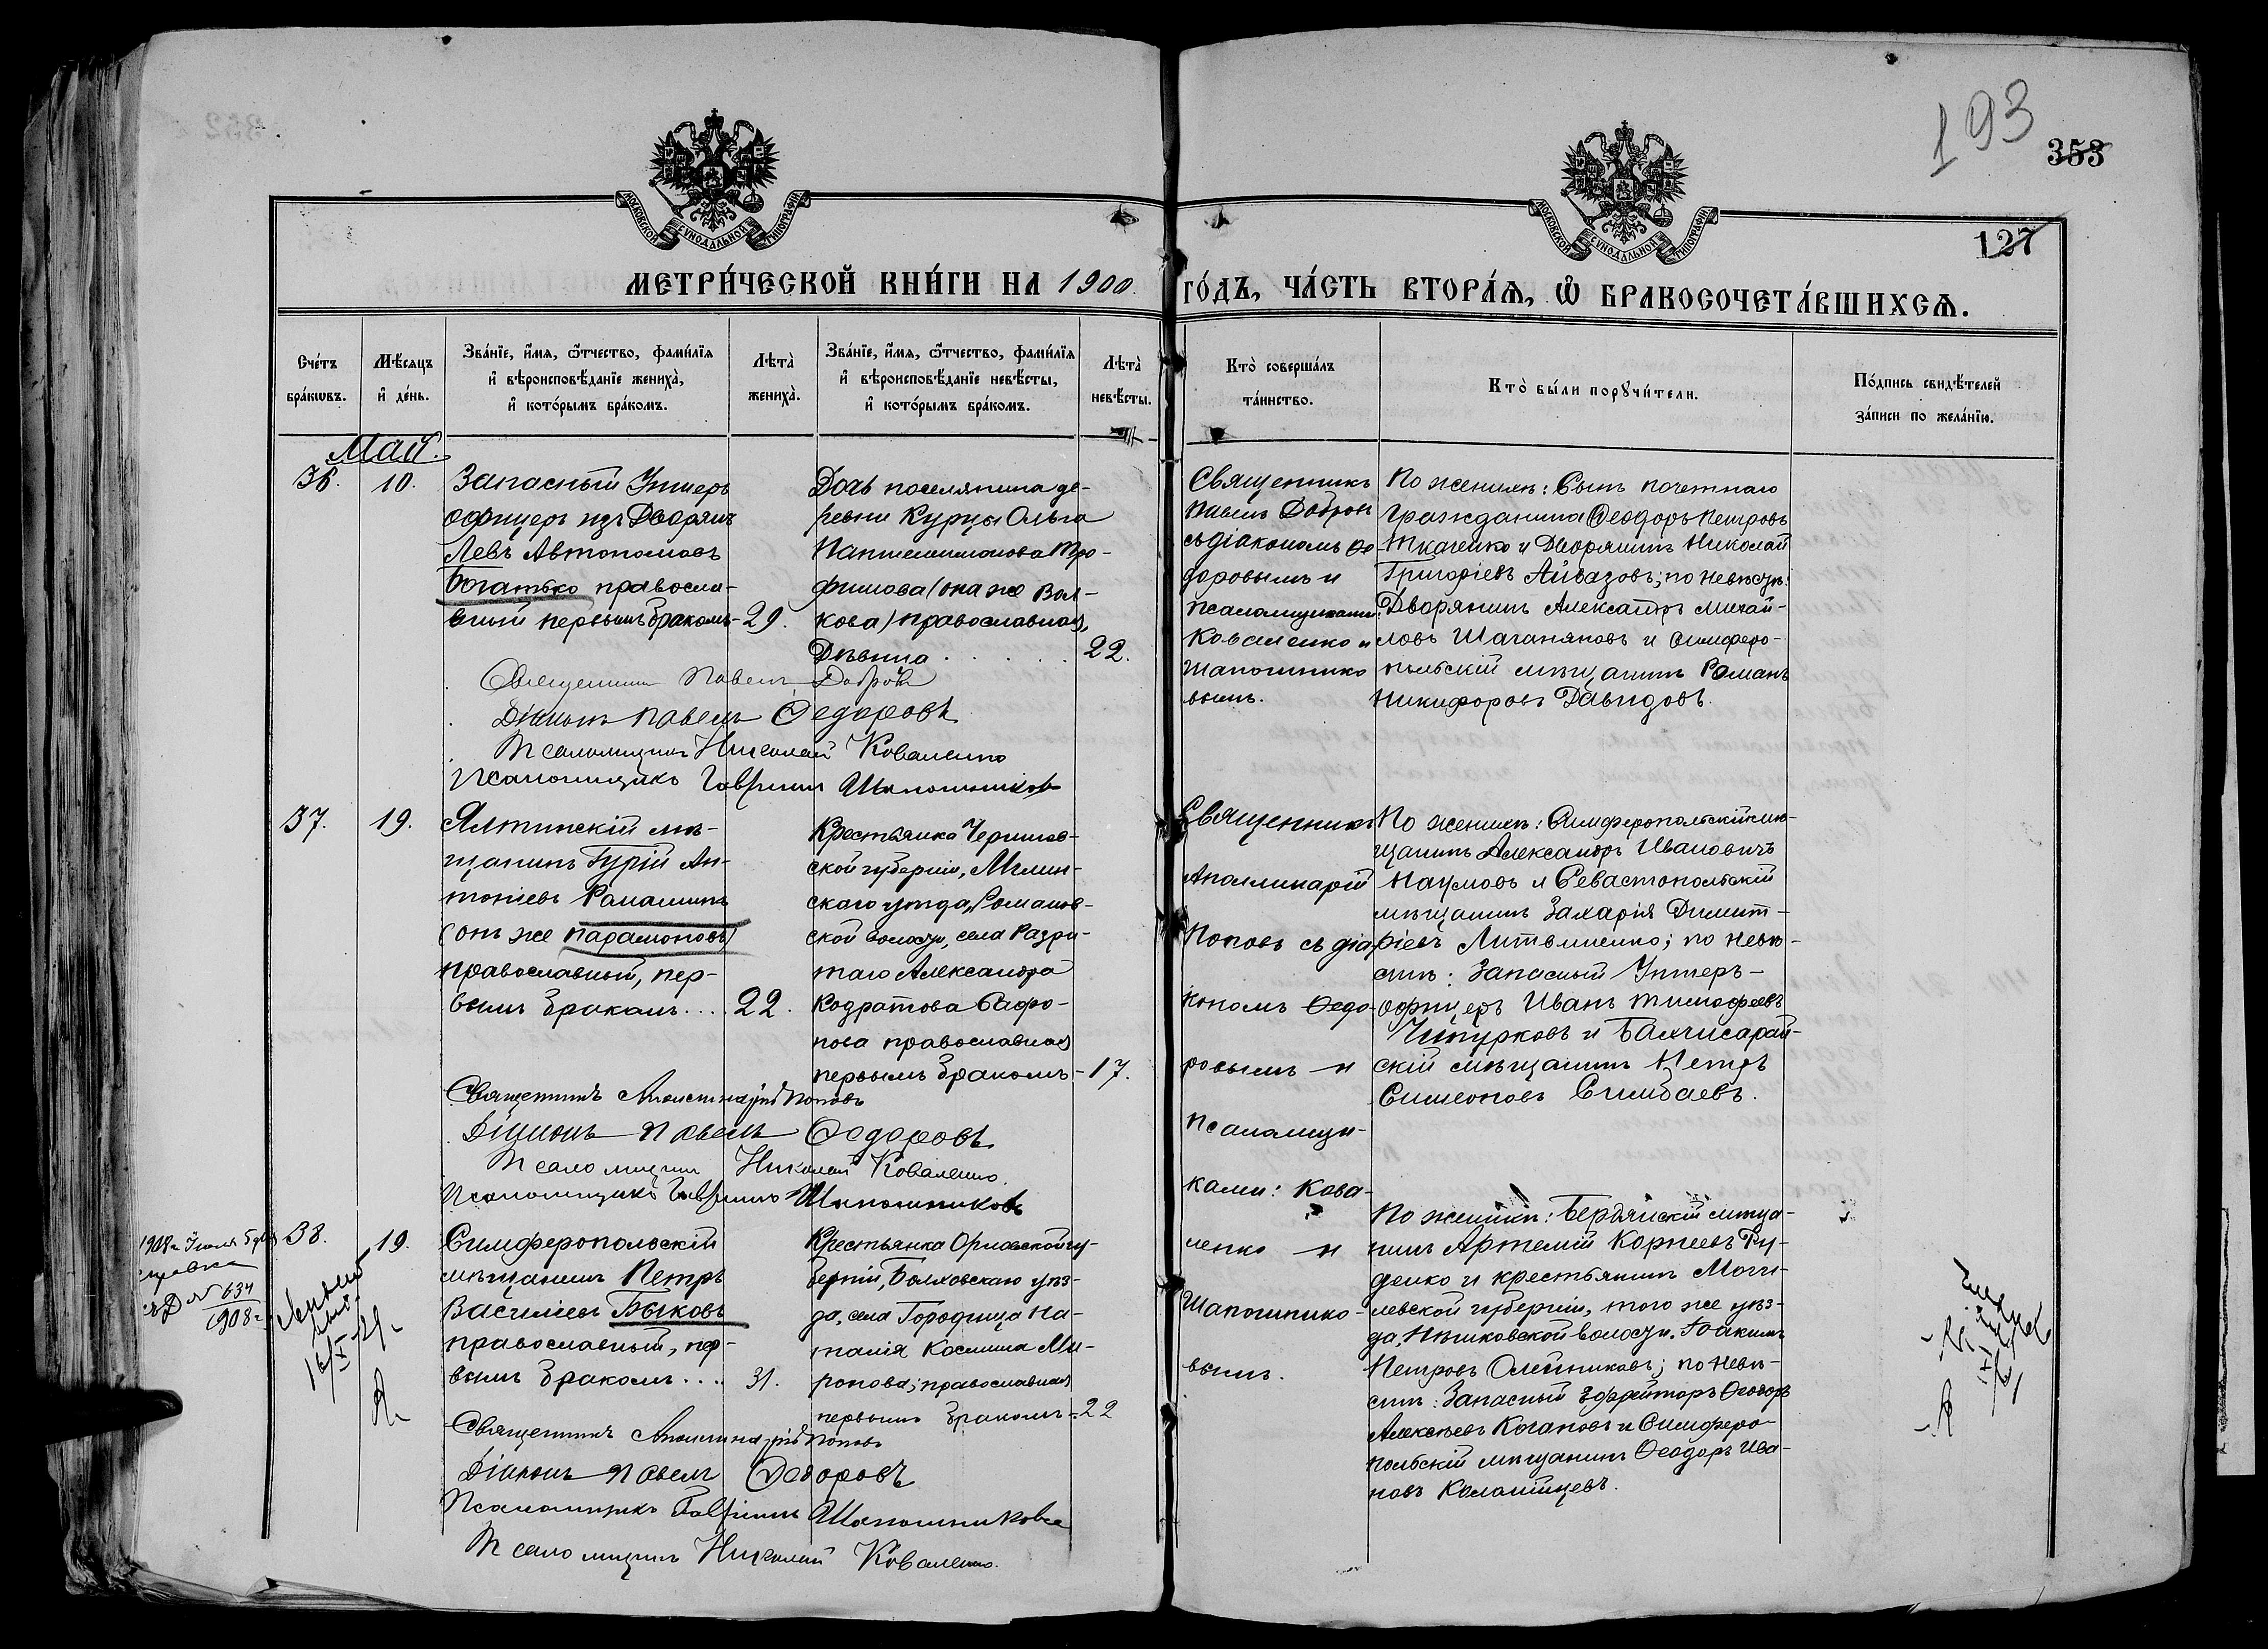 193
353
127
МОСКОВСКОЙ СѴНОДАЛЬНОЙ ТИПОГРАФІИ
МОСКОВСКОЙ СѴНОДАЛЬНОЙ ТИПОГРАФІИ
МЕТРИ́ЧЕСКОЙ КНИ́ГИ НА 1900 ГО́ДЪ, ЧА́СТЬ ВТОРА́Ѧ, Ѡ БРАКОСОЧЕТА́ВШИХСѦ.
Сче́тъ
бра́кѡвъ.
Мѣ́сѧцъ
и҆ де́нь.
Зва́нїе, и҆́мѧ, ѻ҆́тчество, фами́лїѧ
и҆ вѣроисповѣ́данїе жениха̀,
и҆ кото́рымъ бра́комъ.
Лѣта̀
жениха̀.
Зва́нїе, и҆́мѧ, ѻ҆́тчество, фами́лїѧ
и҆ вѣроисповѣ́данїе невѣ́сты,
и҆ кото́рымъ бра́комъ.
Лѣта̀
невѣ́сты.
Кто̀ соверша́лъ
та́инство.
Кто̀ бы́ли порꙋчи́тели.
По́дпись свидѣ́телей
за́писи по жела́нїю.
Май.
36.
10.
Запасный Унтеръ
офицеръ изъ Дворянъ
Левъ Автономовъ
Богатько правосла-
вный первымъ бракомъ-
29.
Дочь поселянина де-
ревни Курцы Ольга
Пантелеимонова Тро-
фимова (она же Вол-
кова) православная,
Дѣвица
22.
Священникъ
Павелъ Добровъ
съ діакономъ Ѳе-
доровымъ и
псаломщиками:
Коваленко и
Шапошнико
вымъ.
По женихѣ: Сынъ почетнаго
гражданина Ѳеодоръ Петровъ
Ткаченко и Дворянинъ Николай
Григоріевъ Айвазовъ; по невѣстѣ:
Дворянинъ Александръ Михай-
ловъ Шаганяновъ и Симферо-
польскій мѣщанинъ Романъ
Никифоровъ Давидовъ.
Священникъ Павелъ Добровъ
Діаконъ Павелъ Ѳедоровъ
Псаломщикъ Николай Коваленко
Псаломщикъ Гавріилъ Шапошниковъ
37.
19.
Ялтинскій мѣ-
щанинъ Гурій Ан-
тоніевъ Рамашинъ
(онъ же Парамоновъ)
православный, пер-
вымъ бракомъ....
22.
Крестьянка Чернигов-
ской губерніи, Мглин-
скаго уѣзда, Романов-
ской волости, села Разры-
таго Александра
Кодратова Сафро-
нова православная
первымъ бракомъ-
17.
Священникъ
Аполлинарій
Поповъ съ діа
кономъ Ѳедо-
ровымъ и
псаломщи-
ками: Кова-
ленко и
Шапошнико-
вымъ.
По женихѣ: Симферопольскій мѣ-
щанинъ Александръ Ивановичъ
Наумовъ и Севастопольскій
мѣщанинъ Захарія Димит-
ріевъ Литвиненко; по невѣ-
стѣ: Запасный Унтеръ-
офицеръ Иванъ Тимофеевъ
Чепурковъ и Бахчисарай-
скій мѣщанинъ Петръ
Симеоновъ Симбаевъ.
Священникъ Аполлинарій Поповъ
Діаконъ Павелъ Ѳедоровъ
Псаломщикъ Николай Коваленко.
Псаломщикъ Гавріилъ Шапошниковъ
1908 г. Іюля 5
№ 634
1908 г.
38.
19.
Симферопольскій
мѣщанинъ Петръ
Василіевъ Быковъ
православный, пер-
вымъ бракомъ...
31.
Крестьянка Орловской гу-
берніи, Болховскаго уѣз-
да, села Городища На-
талія Космина Ми-
ронова; православная
первымъ бракомъ-
22
По женихѣ: Бердянскій мѣща-
нинъ Артемій Корнеевъ Ру-
денко и крестьянинъ Моги-
левской губерніи, того же уѣз-
да, волости, Іоакимъ
Петровъ Олейниковъ; по невѣ-
стѣ: Запасный Ефрейторъ Ѳеодоръ
Алексѣевъ Качановъ и Симферо-
польскій мѣщанинъ Ѳеодоръ Ива-
новъ Коломійцевъ.
Священникъ Аполлинарій Поповъ
Діаконъ Павелъ Ѳедоровъ
Псаломщикъ Гавріилъ Шапошниковъ
Псаломщикъ Николай Коваленко.